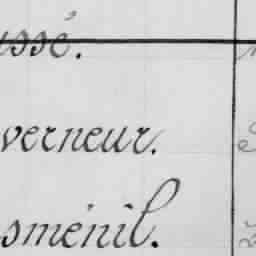 ussé.
verneur.
sménil.